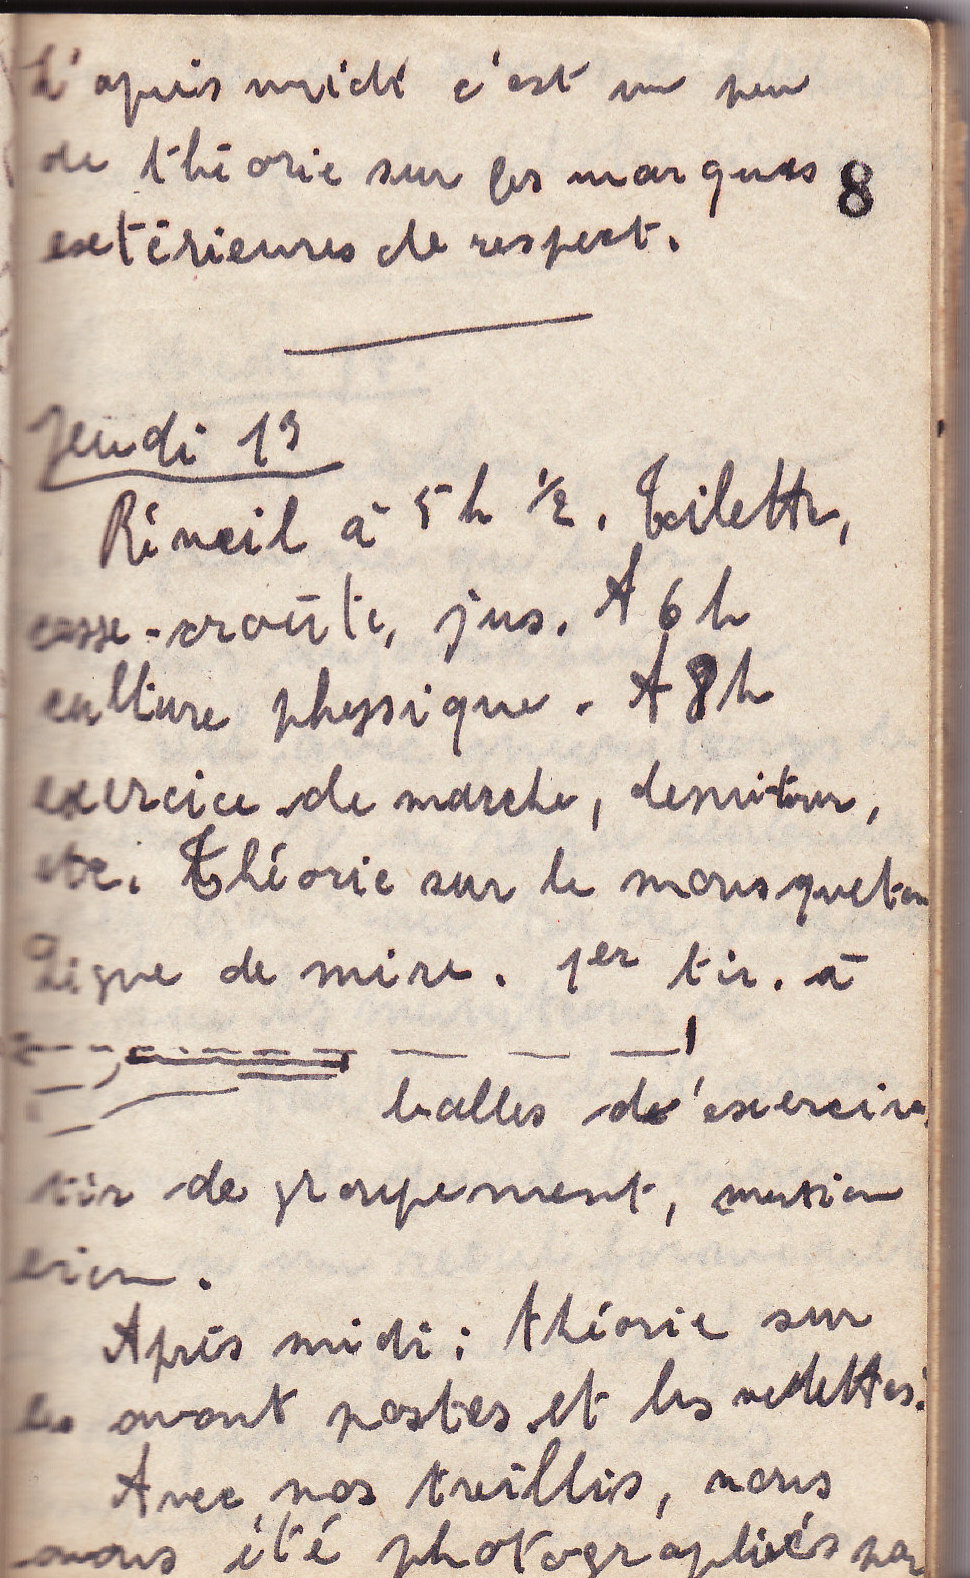 L'après midi c'est un peu
de théorie sur les marques
8
extérieures de respect.
Jeudi 13
Réveil à 5h 1/2. Toilette,
casse-croûte, jus. A 6h
culture physique. A 8h
exercice de marche, demi tour,
etc. Théorie sur le mousqueton
Ligne de mire. 1er tir. à
balles d'exercice,
tir de groupement,
Après midi : théorie sur
les avant postes et les vedettes.
Avec nos treillis, nous
avons été photographiés par